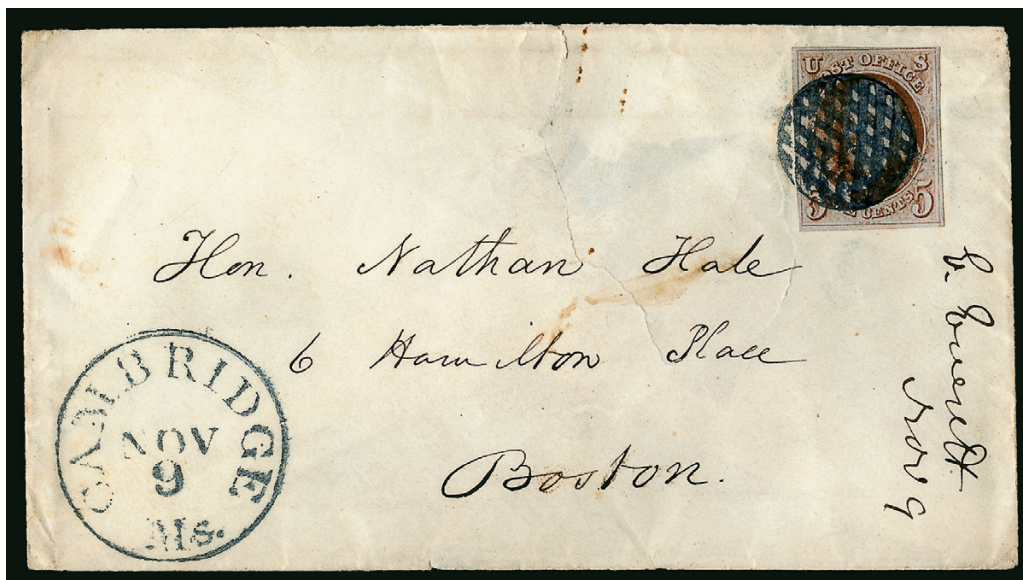 U S
POST OFFICE
FIVE CENTS
5 5
Hon. Nathan Hale
6 Hamilton Place
Boston.
CAMBRIDGE
NOV
9
Ms.
E. Everett
Nov 9